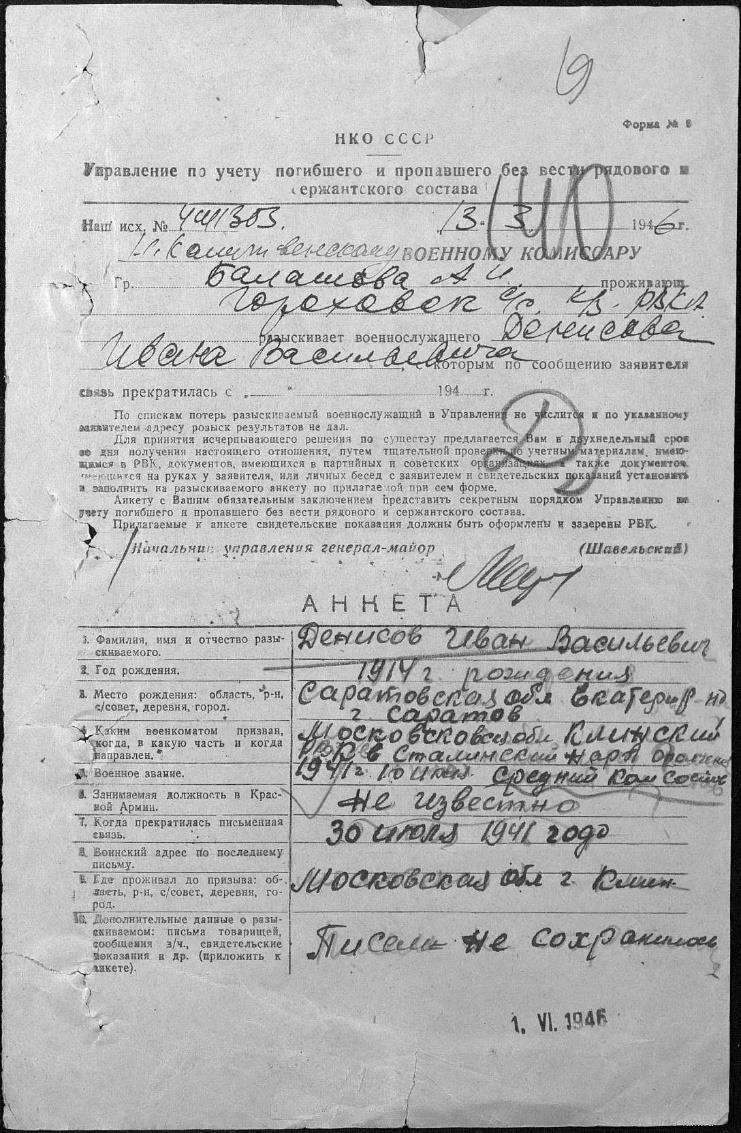 Форма № 8
НКО СССР
Управление по учету погибшего и пропавшего без вести рядового и
сержантского состава
140
Наш исх. № 13. 3 1946 г.
ВОЕННОМУ КОМИССАРУ
Гр. Балашова А И. проживающ.
Гороховск с/с.
разыскивает военнослужащего Денисова
Ивана Васильевича которым по сообщению заявителя
связь прекратилась с „ “ 194 г.
По спискам потерь разыскиваемый военнослужащий в Управлении не числится и по указанному
заявителем адресу розыск результатов не дал.
Для принятия исчерпывающего решения по существу предлагается Вам в двухнедельный срок
со дня получения настоящего отношения, путем тщательной проверки по учетным материалам, имею-
щимся в РВК, документов, имеющихся в партийных и советских организациях, а также документов,
имеющихся на руках у заявителя, или личных бесед с заявителем и свидетельских показаний установить
и заполнить на разыскиваемого анкету по прилагаемой при сем форме.
Анкету с Вашим обязательным заключением представить секретным порядком Управлению по
учету погибшего и пропавшего без вести рядового и сержантского состава.
Прилагаемые к анкете свидетельские показания должны быть оформлены и заверены РВК.
Начальник управления генерал-майор (Шавельский)
АНКЕТА
1. Фамилия, имя и отчество разы- Денисов Иван Васильевич
скиваемого.
2. Год рождения. 1914 г рождения
3. Место рождения: область, р-н, Саратовская обл
с/совет, деревня, город. г Саратов
4. Каким военкоматом призван, Клинский
когда, в какую часть и когда РВК в Сталинский
направлен. 1941 г
5. Военное звание. Средний ком состав
6. Занимаемая должность в Крас- Не известно
ной Армии.
7. Когда прекратилась письменная 30 июля 1941 годо
связь.
8. Воинский адрес по последнему
письму.
9. Где проживал до призыва: об- Московская обл г. Клин
ласть, р-н, с/совет, деревня, го-
род.
10. Дополнительные данные о разы-
скиваемом: письма товарищей, Писем не сохранилось
сообщения в/ч., свидетельские
показания и др. (приложить к
анкете).
1. VI. 1946